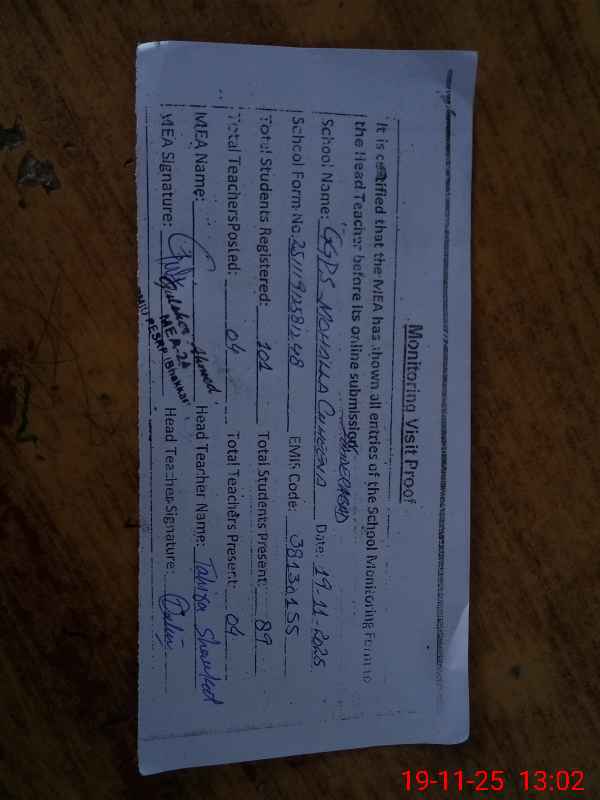 Monitoring Visit Proof
It is certified that the MEA has shown all entries of the School Monitoring Form to
the Head Teacher before its online submission
School Name: GGPS MOHALLA Date: 19-11-2025
School Form No. EMIS Code: 38130155
Total Students Registered: 101 Total Students Present: 89
Total Teachers Posted: 04 Total Teachers Present: 04
MEA Name: Ahmed Head Teacher Name: Tahira Shaukat
MEA Signature: Head Teacher Signature:
MEA-24
19-11-25 13:02